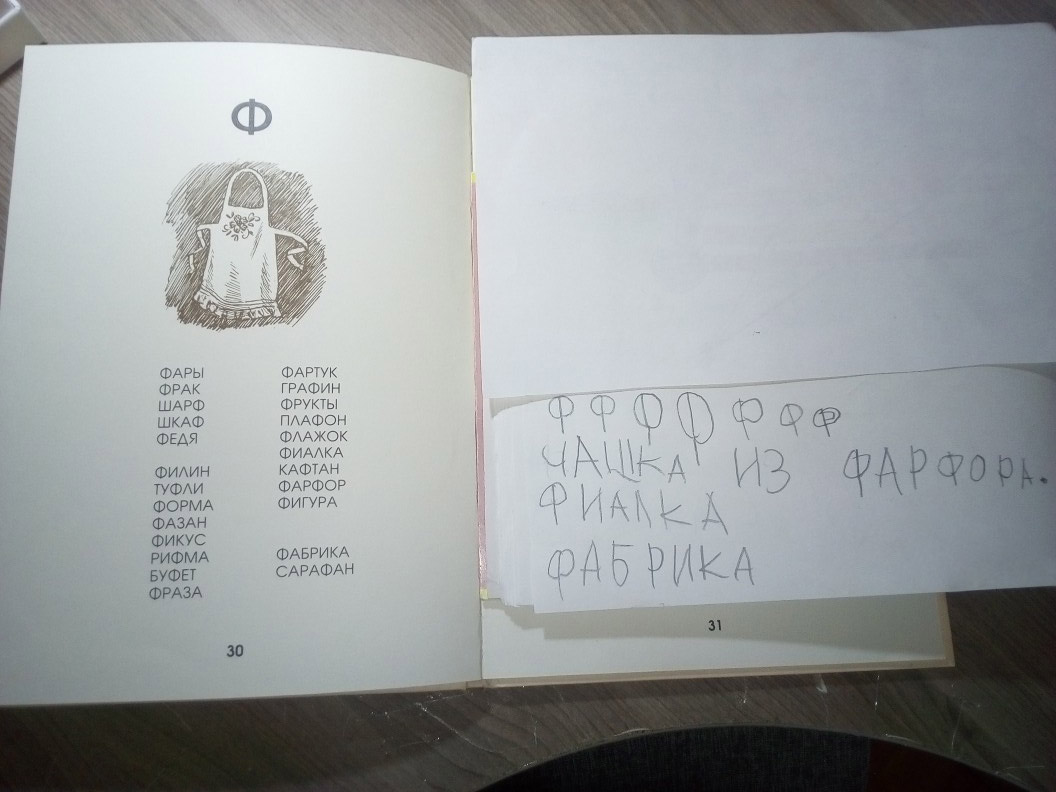 Ф
ФАРЫ
ФРАК
ШАРФ
ШКАФ
ФЕДЯ
ФИЛИН
ТУФЛИ
ФОРМА
ФАЗАН
ФИКУС
РИФМА
БУФЕТ
ФРАЗА
ФАРТУК
ГРАФИН
ФРУКТЫ
ПЛАФОН
ФЛАЖОК
ФИАЛКА
КАФТАН
ФАРФОР
ФИГУРА
ФАБРИКА
САРАФАН
30
Ф Ф Ф Ф Ф Ф Ф
ЧАШКА ИЗ ФАРФОРА.
ФИАЛКА
ФАБРИКА
31